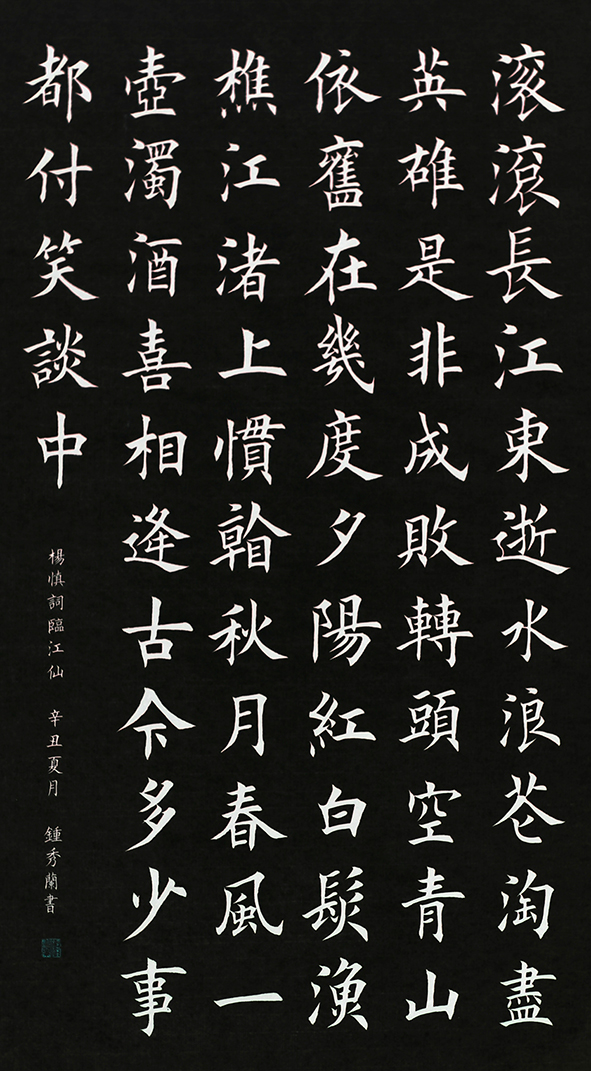 滚滾長江東逝水浪花淘盡
英雄是非成敗轉頭空青山
依舊在幾度夕陽紅白髮漁
樵江渚上慣看秋月春風一
壺濁酒喜相逢古今多少事
都付笑談中
楊慎詞臨江仙 辛丑夏月 鍾秀蘭書